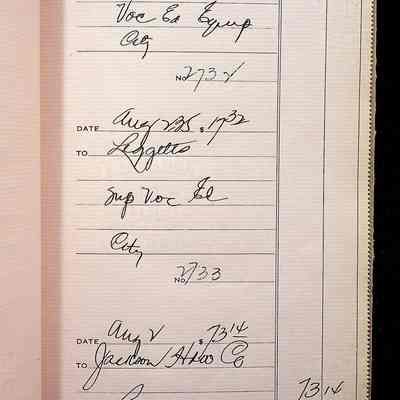 Voc Ed Equip
City
No 2732
DATE Aug 2 35 $ 17 32
TO Leggetts
Sup Voc Ed
City
No 2733
DATE Aug 2 $ 73 14
TO Jackson Hdw Co
73 14